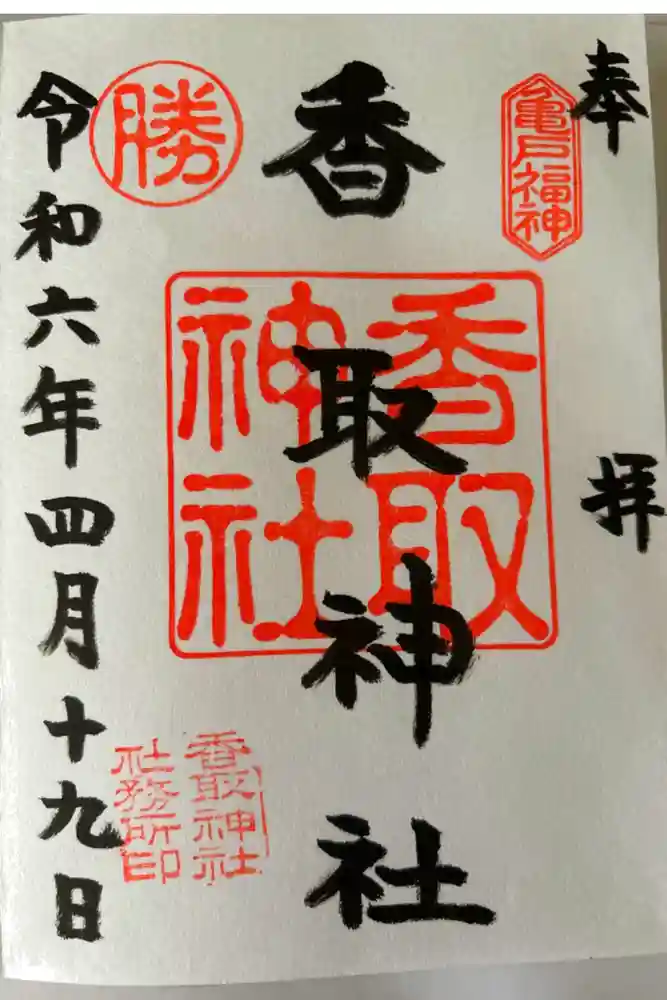 奉拝
亀戸福神
香取神社
香取神社
勝
令和六年四月十九日
香取神社
社務所印